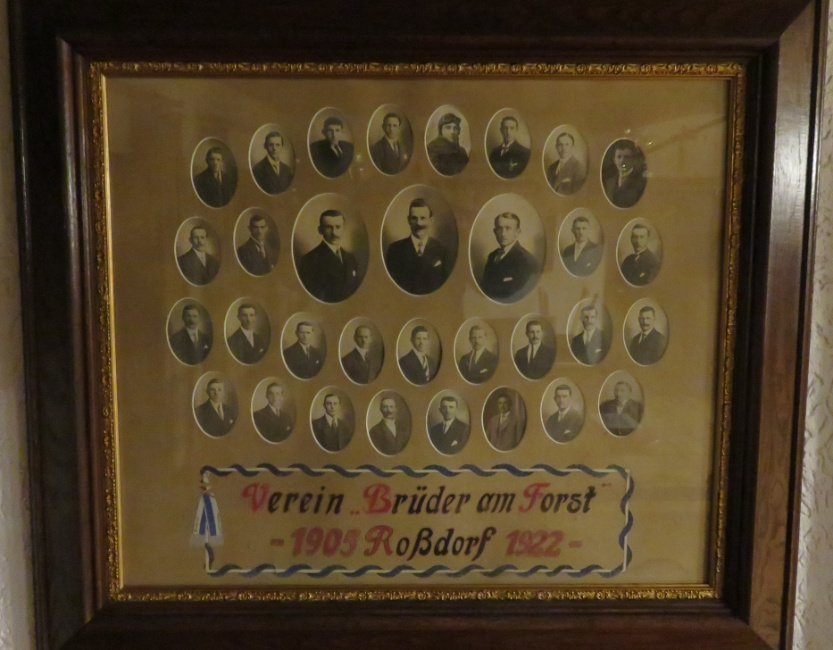 Verein „Brüder am Forst"
- 1905 Roßdorf 1922 -